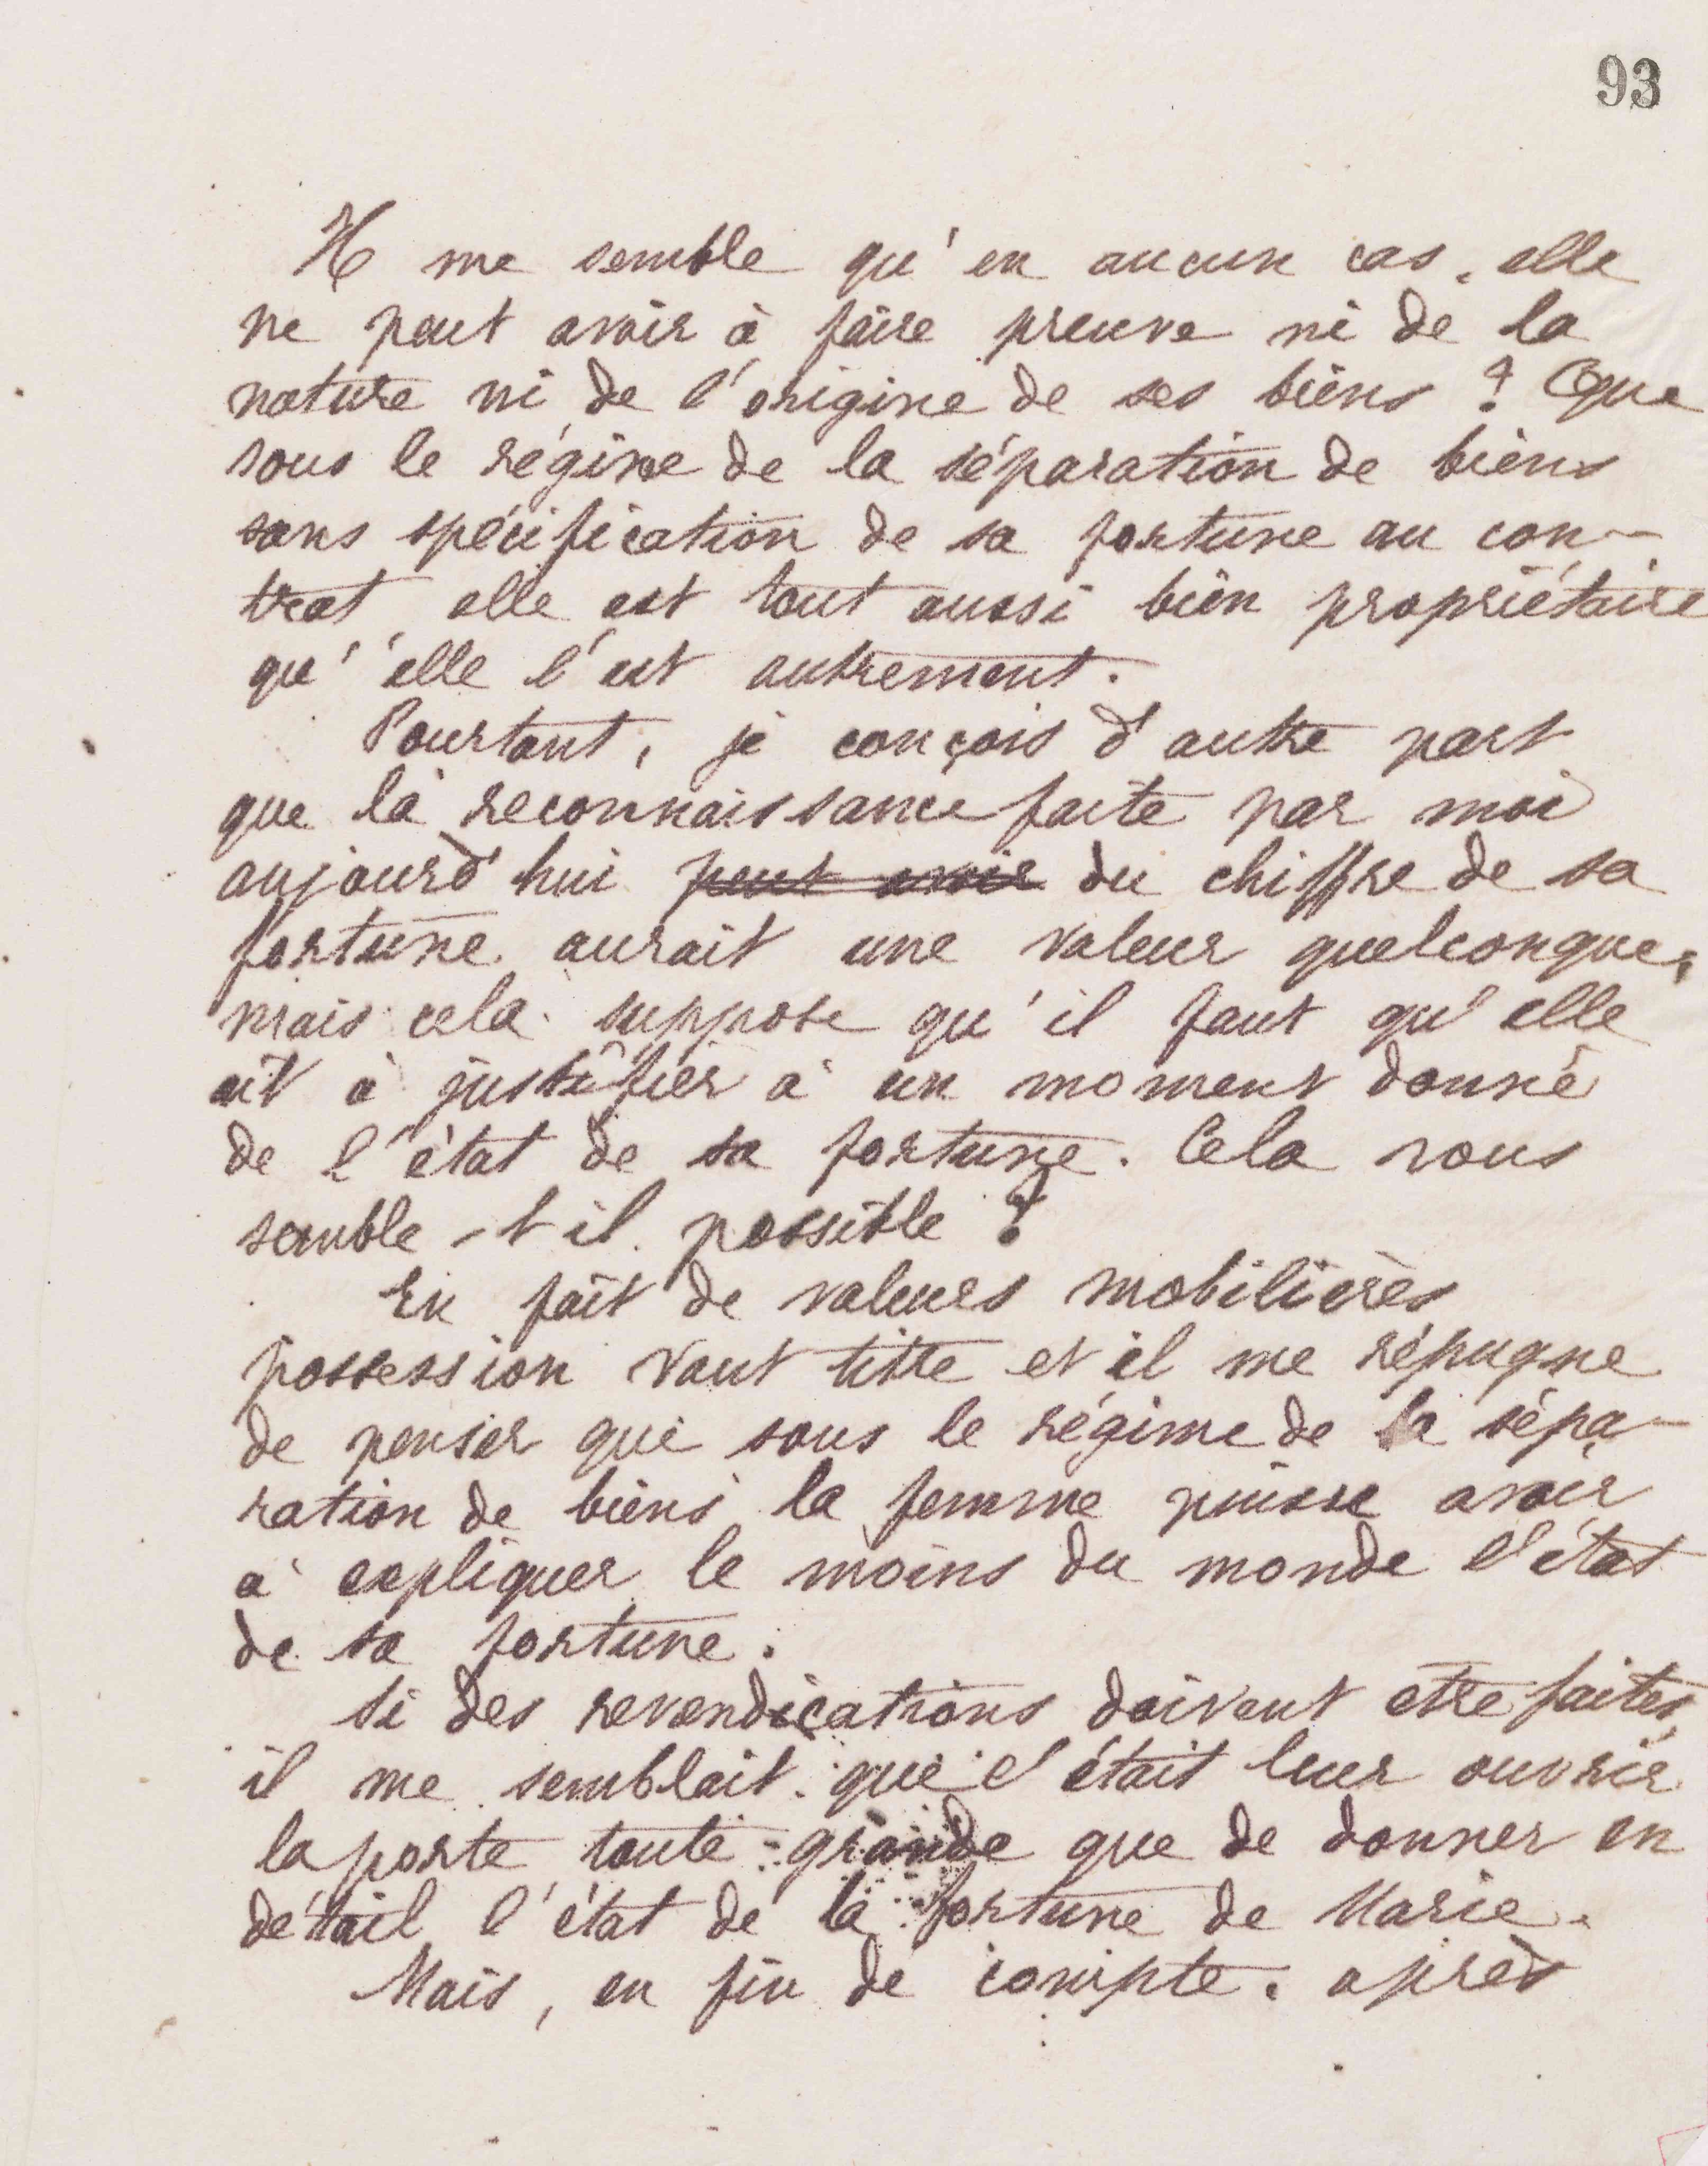 93
Il me semble qu'en aucun cas, elle
ne peut avoir à faire preuve ni de la
nature ni de l'origine de ses biens ? Que
sous le régime de la séparation de biens
sans spécification de sa fortune au con-
trat elle est tout aussi bien propriétaire
qu'elle l'est autrement.
Pourtant, je conçois d'autre part
que la reconnaissance faite par moi
aujourd'hui peut avoir du chiffre de sa
fortune aurait une valeur quelconque,
mais cela suppose qu'il faut qu'elle
ait à justifier à un moment donné
de l'état de sa fortune. Cela vous
semble-t il possible ?
En fait de valeurs mobilières
possession vaut titre et il me répugne
de penser que sous le régime de la sépa-
ration de biens la femme puisse avoir
à expliquer le moins du monde l'état
de sa fortune.
Si des revendications doivent etre faites,
il me semblait que c'était leur ouvrir
la porte toute grande que de donner en
détail l'état de la fortune de Marie.
Mais, en fin de compte, après